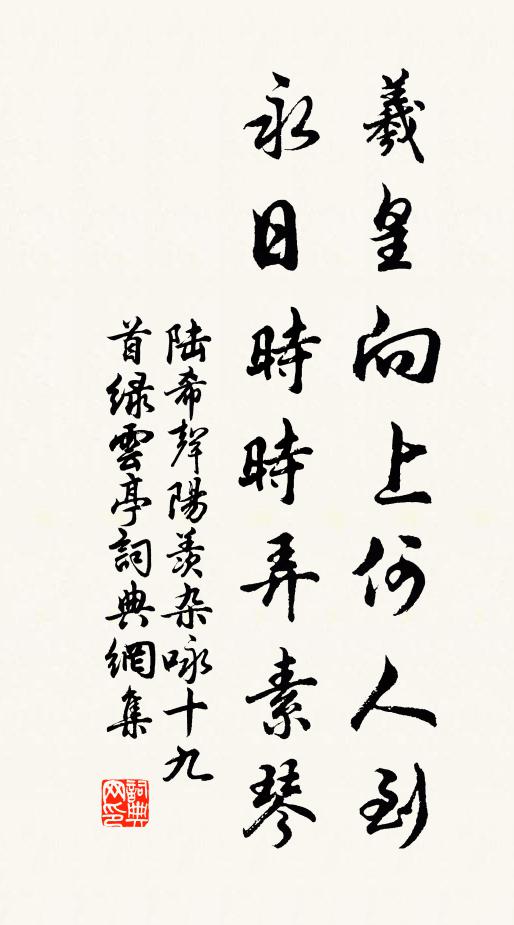 羲皇向上何人到
永日時時弄素琴
陸希聲陽羨杂咏十九
首緑雲亭詞典網集
詞典網印